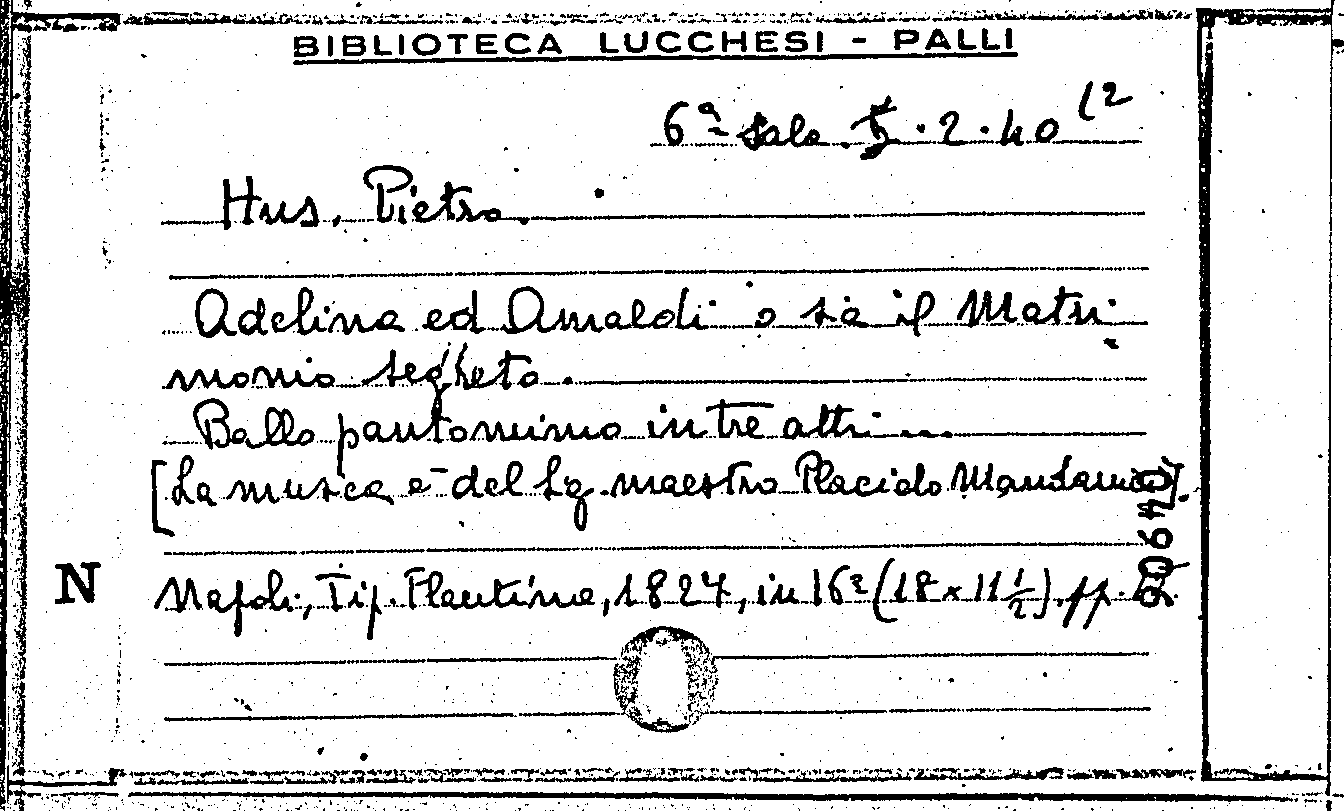 BIBLIOTECA LUCCHESI - PALLI
6ª Sala. 5.2.40 12
Hus, Pietro.
Adelina ed Amaldi o sia il Matri
monio segreto.
Ballo pantomimo in tre atti ...
[La musica è del Sg. maestro Placido Mandanici].
N Napoli, Tip. Flautina, 1824, in 16º (18 x 11 1/2). pp.